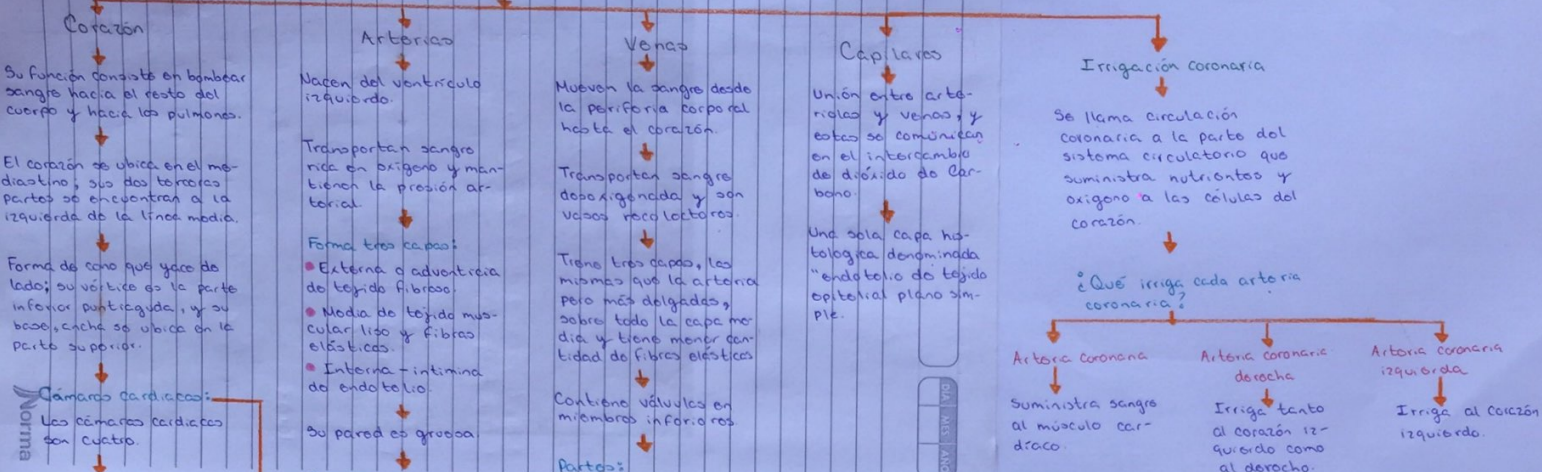 Corazón
Su función consiste en bombear
sangre hacia el resto del
cuerpo y hacia los pulmones.
El corazón se ubica en el me-
diastino, sus dos terceras
partes se encuentran a la
izquierda de la línea media.
Forma de cono que yace de
lado; su vértice es la parte
inferior puntiaguda, y su
base, ancha se ubica en la
parte superior.
Cámaras cardiacas:
Las cámaras cardiacas
son cuatro.
Norma
Arterias
Nacen del ventrículo
izquierdo.
Transportan sangre
rica en oxígeno y man-
tienen la presión ar-
terial.
Forma tres capas:
• Externa o adventicia
de tejido fibroso.
• Media de tejido mus-
cular liso y fibras
elásticas.
• Interna - intimina
de endotelio.
Su pared es gruesa.
Venas
Mueven la sangre desde
la periferia corporal
hasta el corazón.
Transportan sangre
desoxigenada y son
vasos recolectores.
Tiene tres capas, las
mismas que la arteria
pero más delgadas,
sobre todo la capa me-
dia y tiene menor can-
tidad de fibras elásticas
Contiene válvulas en
miembros inferiores.
Partes:
Capilares
Unión entre arte-
riolas y venas, y
estas se comunican
en el intercambio
de dióxido de car-
bono.
Una sola capa his-
tologica denominada
"endotelio de tejido
epiterial plano sim-
ple.
DIA MES AÑO
Irrigación coronaria
Se llama circulación
coronaria a la parte del
sistema circulatorio que
suministra nutrientes y
oxígeno a las células del
corazón.
¿Qué irriga cada arteria
coronaria?
Arteria coronaria
Suministra sangre
al músculo car-
díaco.
Arteria coronaria
derecha
Irriga tanto
al corazón iz-
quierdo como
al derecho.
Arteria coronaria
izquierda
Irriga al corazón
izquierdo.